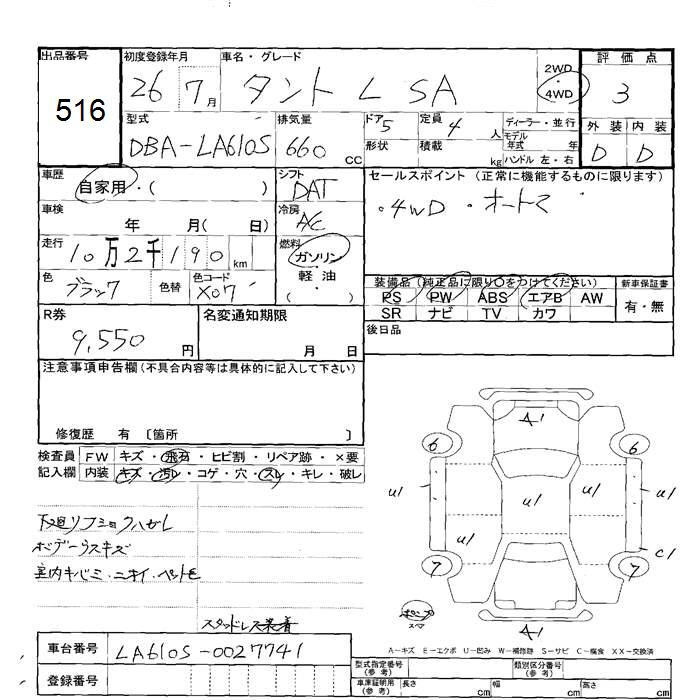 出品番号
516
初度登録年月
26 7月
車名・グレード
タント L SA
2WD
4WD
評価点
3
型式
DBA-LA610S
排気量
660 CC
ドア 5
形状
定員 4 人
積載 kg
ディーラー・並行
モデル年式 年
ハンドル 左・右
外装 内装
D D
車歴
自家用・( )
シフト
DAT
セールスポイント (正常に機能するものに限ります)
・4WD ・オートマ
車検
年 月( 日)
冷房
A/C
走行
10万2千190 km
燃料
ガソリン・
軽油・
( )
色
ブラック
色替
色コード
X07
装備品(純正品に限り○をつけてください)
PS PW ABS エアB AW
SR ナビ TV カワ
新車保証書
有・無
R券
9,550 円
名変通知期限
月 日
後日品
注意事項申告欄(不具合内容等は具体的に記入して下さい)
修復歴 有 〔箇所 〕
検査員記入欄
FW キズ・飛石・ヒビ割・リペア跡・×要
内装 キズ・汚レ・コゲ・穴・スレ・キレ・破レ
ボデーウスキズ
室内キバミ・ニオイ・ペット毛
スタッドレス装着
A1
6 6
U1 U1 U1 U1
U1 C1
7 7
A1
A-キズ E-エクボ U-凹み W-補修跡 S-サビ C-腐食 XX-交換済
車台番号
LA610S-0027741
登録番号
型式指定番号(参考)
類別区分番号(参考)
車庫証明用(参考) 長さ cm 幅 cm 高さ cm